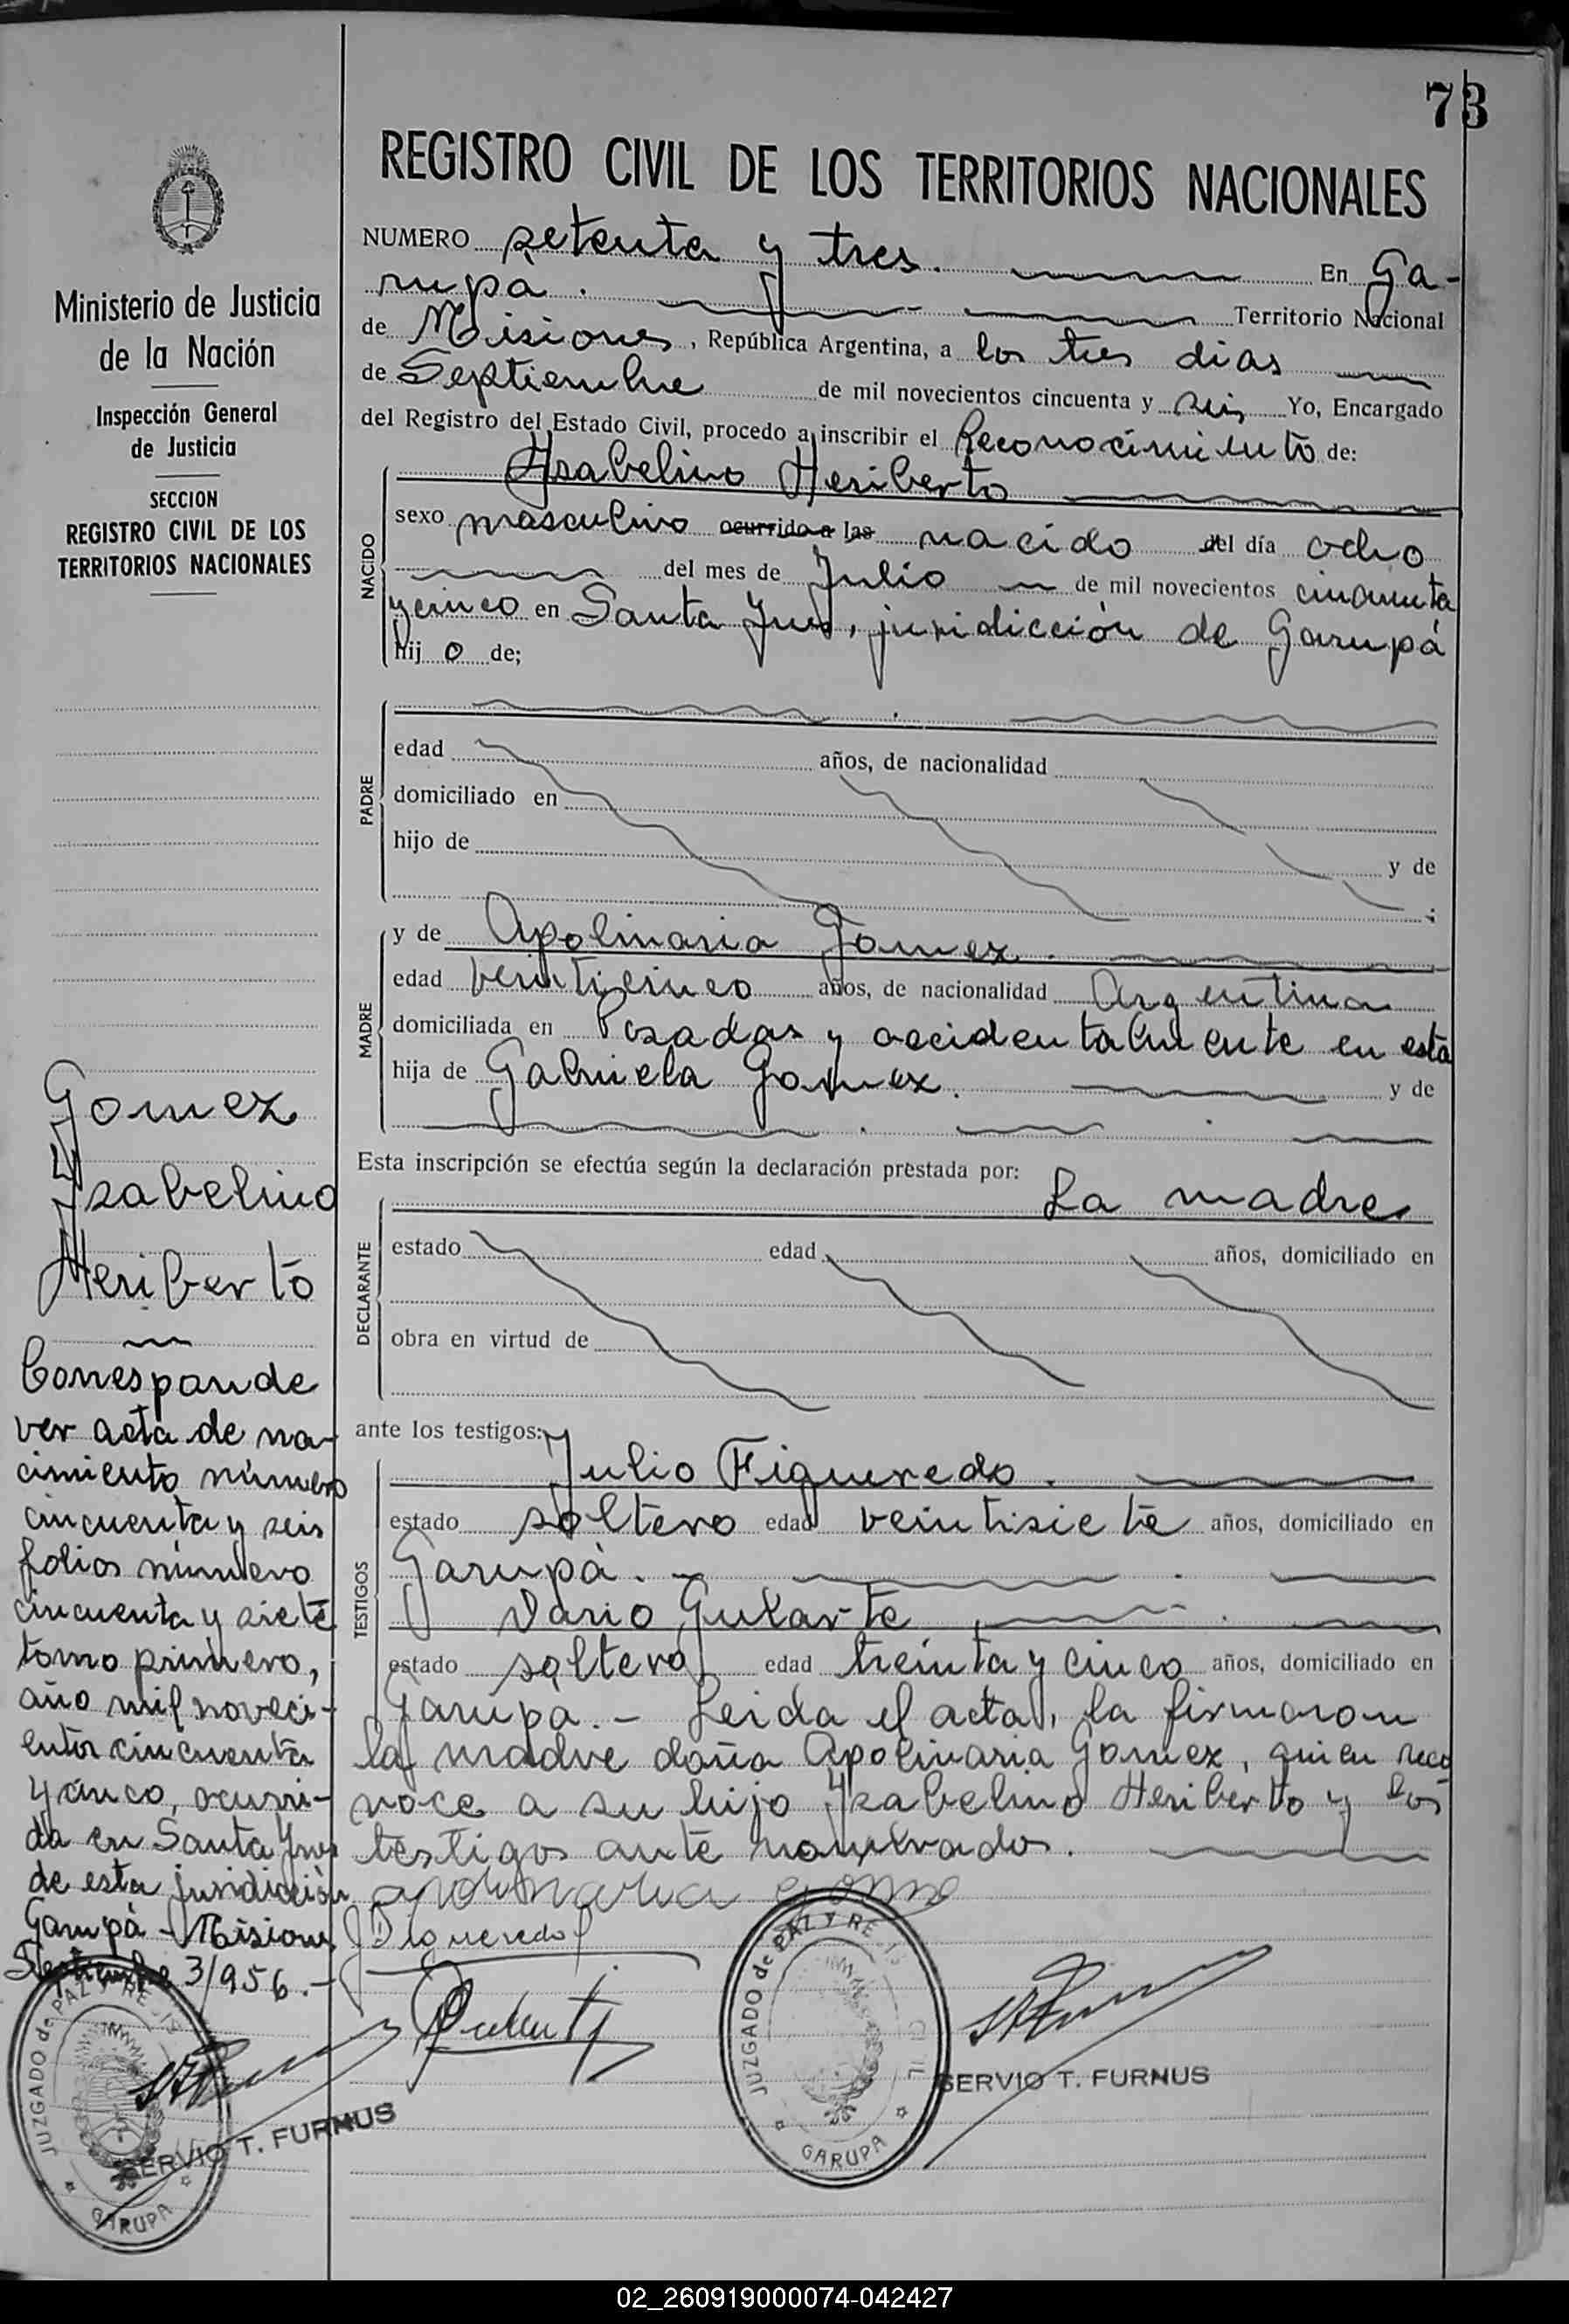 73
REGISTRO CIVIL DE LOS TERRITORIOS NACIONALES
NUMERO setenta y tres. En Ga-
rupá. Territorio Nacional
de Misiones, República Argentina, a los tres dias
de Septiembre de mil novecientos cincuenta y seis Yo, Encargado
del Registro del Estado Civil, procedo a inscribir el Reconocimiento de:
Ysabelino Heriberto
NACIDO
sexo masculino ocurrido a las nacido del día ocho
del mes de Julio de mil novecientos cincuenta
y cinco en Santa Ines, juridicción de Garupá
hijo de;
PADRE
edad años, de nacionalidad
domiciliado en
hijo de y de
;
MADRE
y de Apolinaria Gomez.
edad veinticinco años, de nacionalidad Argentina
domiciliada en Posadas y accidentalmente en esta
hija de Gabriela Gomez. y de
Esta inscripción se efectúa según la declaración prestada por:
La madre
DECLARANTE
estado edad años, domiciliado en
obra en virtud de
ante los testigos:
Julio Figueredo.
TESTIGOS
estado soltero edad veintisiete años, domiciliado en
Garupá.
Dario Gularte
estado soltero edad treinta y cinco años, domiciliado en
Garupa. - Leida el acta, la firmaron
la madre doña Apolinaria Gomez, quien reco
noce a su hijo Ysabelino Heriberto y los
testigos ante nombrados.
apolinaria gomez
JFigueredo
JUZGADO de PAZ Y REG. CIVIL
GARUPA
SERVIO T. FURNUS
Ministerio de Justicia
de la Nación
Inspección General
de Justicia
SECCION
REGISTRO CIVIL DE LOS
TERRITORIOS NACIONALES
Gomez
Ysabelino
Heriberto
Corresponde
ver acta de na-
cimiento número
cincuenta y seis
folios número
cincuenta y siete
tomo primero,
año mil noveci-
entos cincuenta
y cinco, ocurri-
da en Santa Ines
de esta juridicción
Garupá - Misiones
Septiembre 3/956.-
JUZGADO de PAZ Y REG.
GARUPA
SERVIO T. FURNUS
02_260919000074-042427